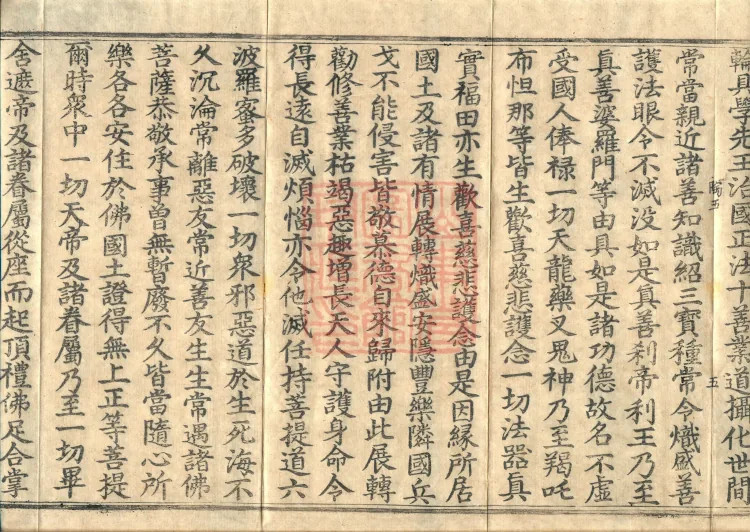 輪具學先王治國正法十善業道攝化世間
常當親近諸善知識紹三寶種常令熾盛善
護法眼令不滅没如是真善刹帝利王乃至
真善婆羅門等由具如是諸功德故名不虛
受國人俸禄一切天龍藥叉鬼神乃至羯吒
布怛那等皆生歡喜慈悲護念一切法器真
實福田亦生歡喜慈悲護念由是因緣所居
國土及諸有情展轉熾盛安隱豐樂隣國兵
戈不能侵害皆敬慕德自來歸附由此展轉
勸修善業枯竭惡趣增長天人守護身命令
得長遠自滅煩惱亦令他滅任持菩提道六
波羅蜜多破壞一切衆邪惡道於生死海不
久沉淪常離惡友常近善友生生常遇諸佛
菩薩恭敬承事曾無暫廢不久皆當隨心所
樂各各安住於佛國土證得無上正等菩提
爾時衆中一切天帝及諸眷屬乃至一切畢
舍遮帝及諸眷屬從座而起頂禮佛足合掌
五